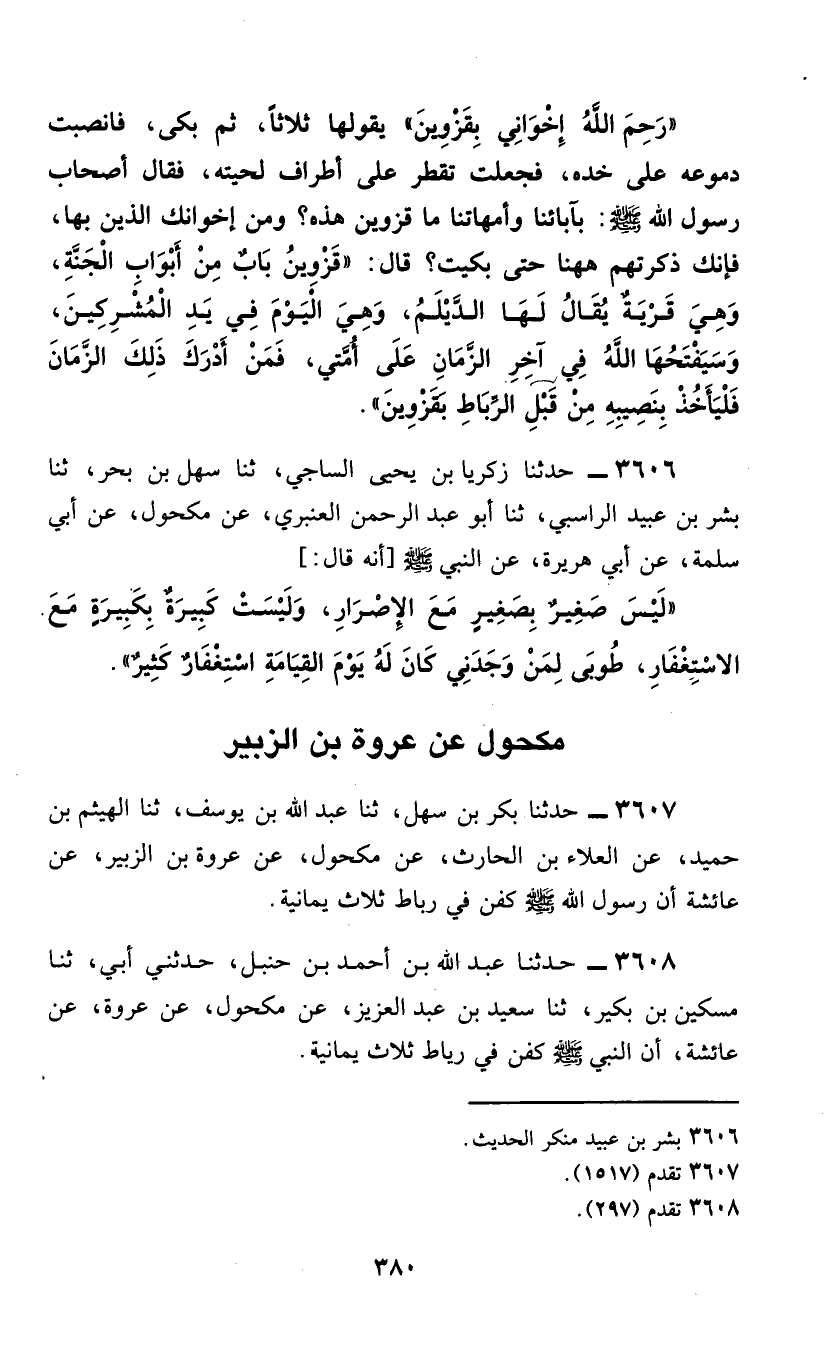 «رَحِمَ اللَّهُ إِخْوَانِي بِقَزْوِينَ» يقولها ثلاثاً، ثم بكى، فانصبت
دموعه على خده، فجعلت تقطر على أطراف لحيته، فقال أصحاب
رسول الله ﷺ: بآبائنا وأمهاتنا ما قزوين هذه؟ ومن إخوانك الذين بها،
فإنك ذكرتهم ههنا حتى بكيت؟ قال: «قَزْوِينُ بَابٌ مِنْ أَبْوَابِ الْجَنَّةِ،
وَهِيَ قَرْيَةٌ يُقَالُ لَهَا الدَّيْلَمُ، وَهِيَ الْيَوْمَ فِي يَدِ الْمُشْرِكِينَ،
وَسَيَفْتَحُهَا اللَّهُ فِي آخِرِ الزَّمَانِ عَلَى أُمَّتي، فَمَنْ أَدْرَكَ ذَلِكَ الزَّمَانَ
فَلْيَأْخُذْ بِنَصِيبِهِ مِنْ قَبْلِ الرِّبَاطِ بَقَزْوِينَ».
٣٦٠٦ ـ حدثنا زكريا بن يحيى الساجي، ثنا سهل بن بحر، ثنا
بشر بن عبيد الراسبي، ثنا أبو عبد الرحمن العنبري، عن مكحول، عن أبي
سلمة، عن أبي هريرة، عن النبي ﷺ [أنه قال:]
«لَيْسَ صَغِيرٌ بِصَغِيرٍ مَعَ الإِصْرَارِ، وَلَيْسَتْ كَبِيرَةٌ بِكَبِيرَةٍ مَعَ
الاسْتِغْفَارِ، طُوبَى لِمَنْ وَجَدَنِي كَانَ لَهُ يَوْمَ القِيَامَةِ اسْتِغْفَارٌ كَثِيرٌ».
مكحول عن عروة بن الزبير
٣٦٠٧ ـ حدثنا بكر بن سهل، ثنا عبد الله بن يوسف، ثنا الهيثم بن
حميد، عن العلاء بن الحارث، عن مكحول، عن عروة بن الزبير، عن
عائشة أن رسول الله ﷺ كفن في رباط ثلاث يمانية.
٣٦٠٨ ـ حدثنا عبد الله بن أحمد بن حنبل، حدثني أبي، ثنا
مسكين بن بكير، ثنا سعيد بن عبد العزيز، عن مكحول، عن عروة، عن
عائشة، أن النبي ﷺ كفن في رياط ثلاث يمانية.
٣٦٠٦ بشر بن عبيد منكر الحديث.
٣٦٠٧ تقدم (١٥١٧).
٣٦٠٨ تقدم (٢٩٧).
٣٨٠